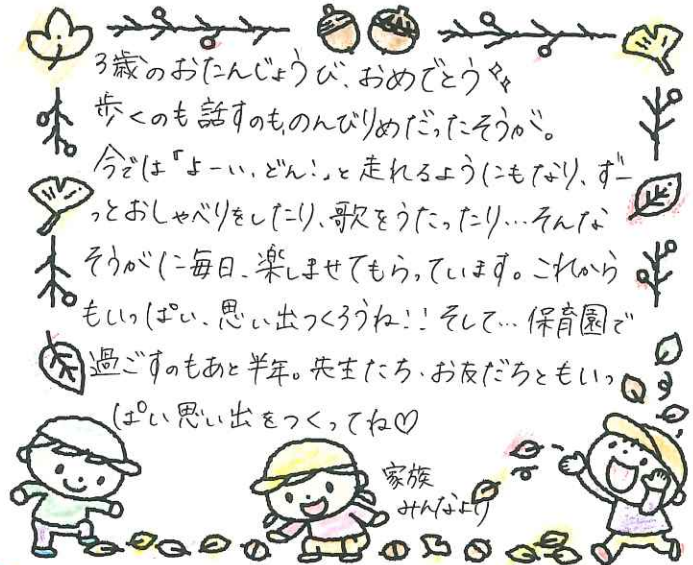 3歳のおたんじょうび、おめでとう✨
歩くのも話すのも、のんびりめだったそうが。
今では「よーい、どん！」と走れるようにもなり、ずー
っとおしゃべりをしたり、歌をうたったり…そんな
そうがに毎日、楽しませてもらっています。これから
もいっぱい、思い出つくろうね！！そして…保育園で
過ごすのもあと半年。先生たち、お友だちともいっ
ぱい思い出をつくってね♡
家族
みんなより